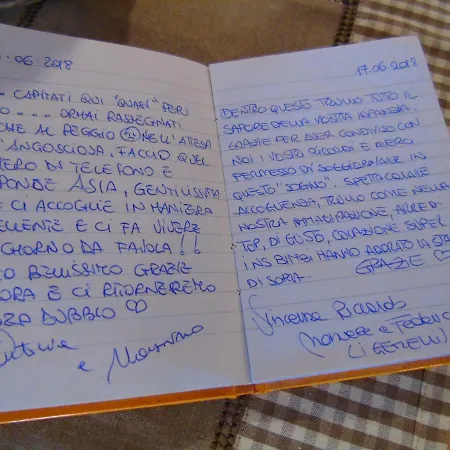 .06.2018
CAPITATI QUI "QUASI" PER
.... ORMAI RASSEGNATI
AL PEGGIO NELL'ATTESA
ANGOSCIOSA, FACCIO QUEL
DI TELEFONO E
ASIA, GENTILISSIMA
E CI ACCOGLIE IN MANIERA
E CI FA VIVERE
DA FAVOLA!!
BELLISSIMO GRAZIE
E CI RITORNEREMO
DUBBIO ♡
e Massimo
17.06.2018
DENTRO QUESTO TRULLO TUTTO IL
SAPORE DELLA VOSTRA INFANZIA.
GRAZIE PER AVER CONDIVISO CON
NOI I VOSTRI RICORDI E AVERCI
PERMESSO DI SOGGIORNARE IN
QUESTO "SOGNO". SPETTACOLARE
ACCOGLIENZA, TRULLO COME NELLA
NOSTRA IMMAGINAZIONE, ARREDI
TOP, DI GUSTO, COLAZIONE SUPER
I NS BIMBI HANNO ADORATO LA STANZA
DI SOPRA.
GRAZIE ♡
Vincenzo
e Federico
(I GEMELLI)